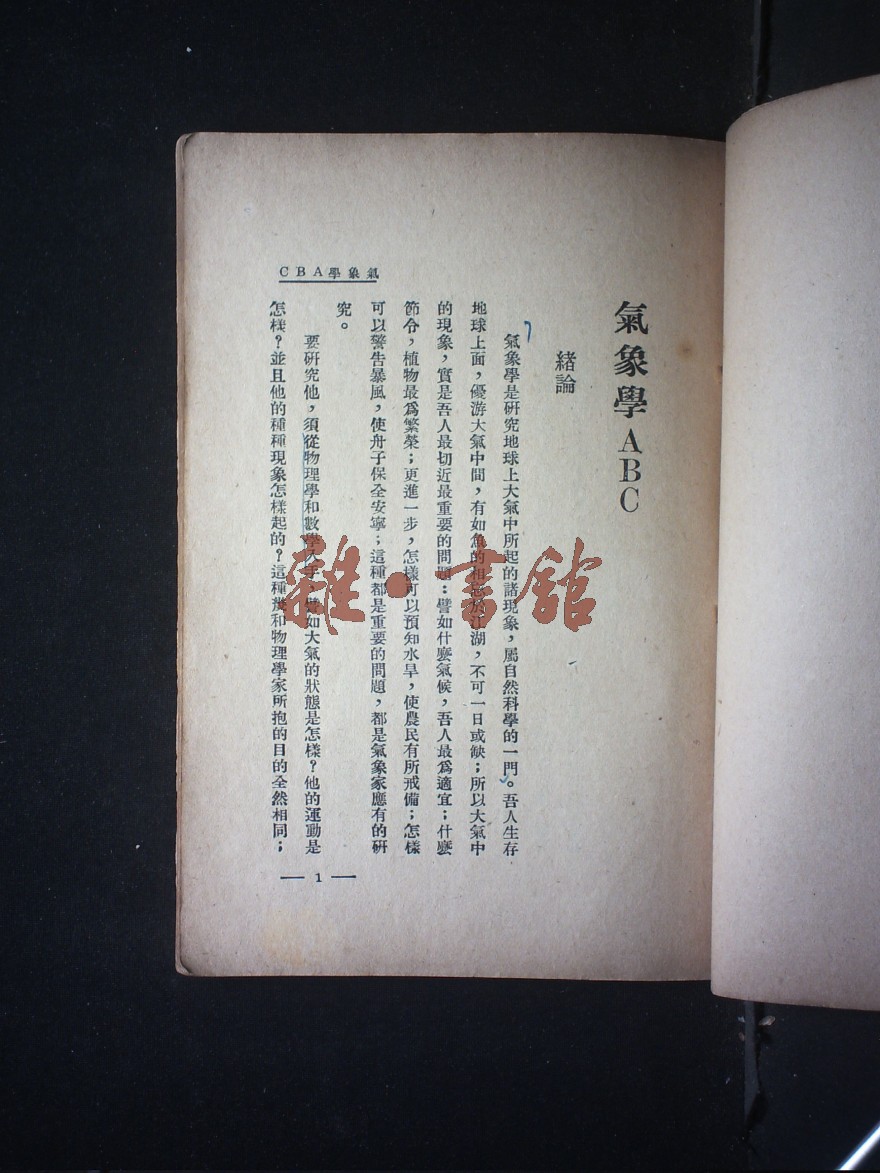 氣象學ABC
緒論
氣象學是研究地球上大氣中所起的諸現象，屬自然科學的一門。吾人生存
地球上面，優游大氣中間，有如魚的相忘於江湖，不可一日或缺；所以大氣中
的現象，實是吾人最切近最重要的問題：譬如什麼氣候，吾人最爲適宜；什麼
節令，植物最爲繁榮；更進一步，怎樣可以預知水旱，使農民有所戒備；怎樣
可以警告暴風，使舟子保全安寧；這種都是重要的問題，都是氣象家應有的研
究。
要研究他，須從物理學和數學入手，譬如大氣的狀態是怎樣？他的運動是
怎樣？並且他的種種現象怎樣起的？這種幾和物理學家所抱的目的全然相同；
CBA學象氣
— 1 —
雜·書館